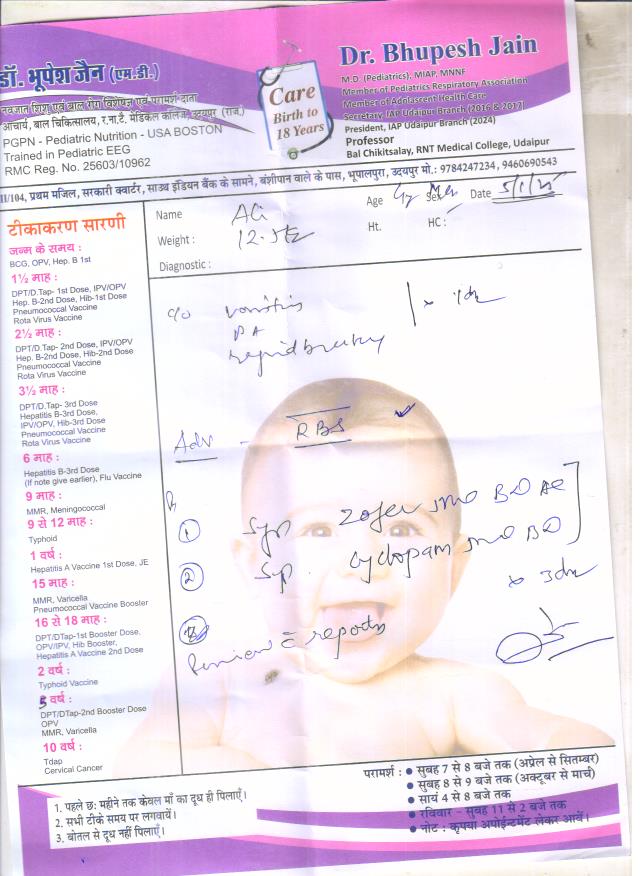 डॉ. भूपेश जैन (एम.डी.)
नवजात शिशु एवं बाल रोग विशेषज्ञ एवं परामर्श दाता
आचार्य, बाल चिकित्सालय, र.ना.टै. मेडिकल कॉलेज, उदयपुर (राज.)
PGPN - Pediatric Nutrition - USA BOSTON
Trained in Pediatric EEG
RMC Reg. No. 25603/10962
Care
Birth to
18 Years
Dr. Bhupesh Jain
M.D. (Pediatrics), MIAP, MNNF
Member of Pediatrics Respiratory Association
Member of Adolascent Health Care
Secretary, IAP Udaipur Branch (2016 & 2017)
President, IAP Udaipur Branch (2024)
Professor
Bal Chikitsalay, RNT Medical College, Udaipur
II/104, प्रथम मंजिल, सरकारी क्वार्टर, साउथ इंडियन बैंक के सामने, बंशीपान वाले के पास, भूपालपुरा, उदयपुर मो.: 9784247234, 9460690543
Name Ali Age Sex Date 5/1/25
Weight : 12.5kg Ht. HC:
Diagnostic :
टीकाकरण सारणी
जन्म के समय :
BCG, OPV, Hep. B 1st
1½ माह :
DPT/D.Tap- 1st Dose, IPV/OPV
Hep. B-2nd Dose, Hib-1st Dose
Pneumococcal Vaccine
Rota Virus Vaccine
2½ माह :
DPT/D.Tap- 2nd Dose, IPV/OPV
Hep. B-2nd Dose, Hib-2nd Dose
Pneumococcal Vaccine
Rota Virus Vaccine
3½ माह :
DPT/D.Tap- 3rd Dose
Hepatitis B-3rd Dose,
IPV/OPV, Hib-3rd Dose
Pneumococcal Vaccine
Rota Virus Vaccine
6 माह :
Hepatitis B-3rd Dose
(If note give earlier), Flu Vaccine
9 माह :
MMR, Meningococcal
9 से 12 माह :
Typhoid
1 वर्ष :
Hepatitis A Vaccine 1st Dose, JE
15 माह :
MMR, Varicella
Pneumococcal Vaccine Booster
16 से 18 माह :
DPT/DTap-1st Booster Dose,
OPV/IPV, Hib Booster,
Hepatitis A Vaccine 2nd Dose
2 वर्ष :
Typhoid Vaccine
5 वर्ष :
DPT/DTap-2nd Booster Dose
OPV
MMR, Varicella
10 वर्ष :
Tdap
Cervical Cancer
c/o vomiting
PA
rapid breathing
Adv - RBS
Rx
1 Syp Zofer 5ml BD AC
2 Syp. Cyclopam 5ml BD
x 3d
Review c reports
1. पहले छः महीने तक केवल माँ का दूध ही पिलाएँ।
2. सभी टीके समय पर लगवायें।
3. बोतल से दूध नहीं पिलाएँ।
परामर्श : ● सुबह 7 से 8 बजे तक (अप्रेल से सितम्बर)
● सुबह 8 से 9 बजे तक (अक्टूबर से मार्च)
● सायं 4 से 8 बजे तक
● रविवार - सुबह 11 से 2 बजे तक
● नोट : कृपया अपोईन्टमेंट लेकर आयें।